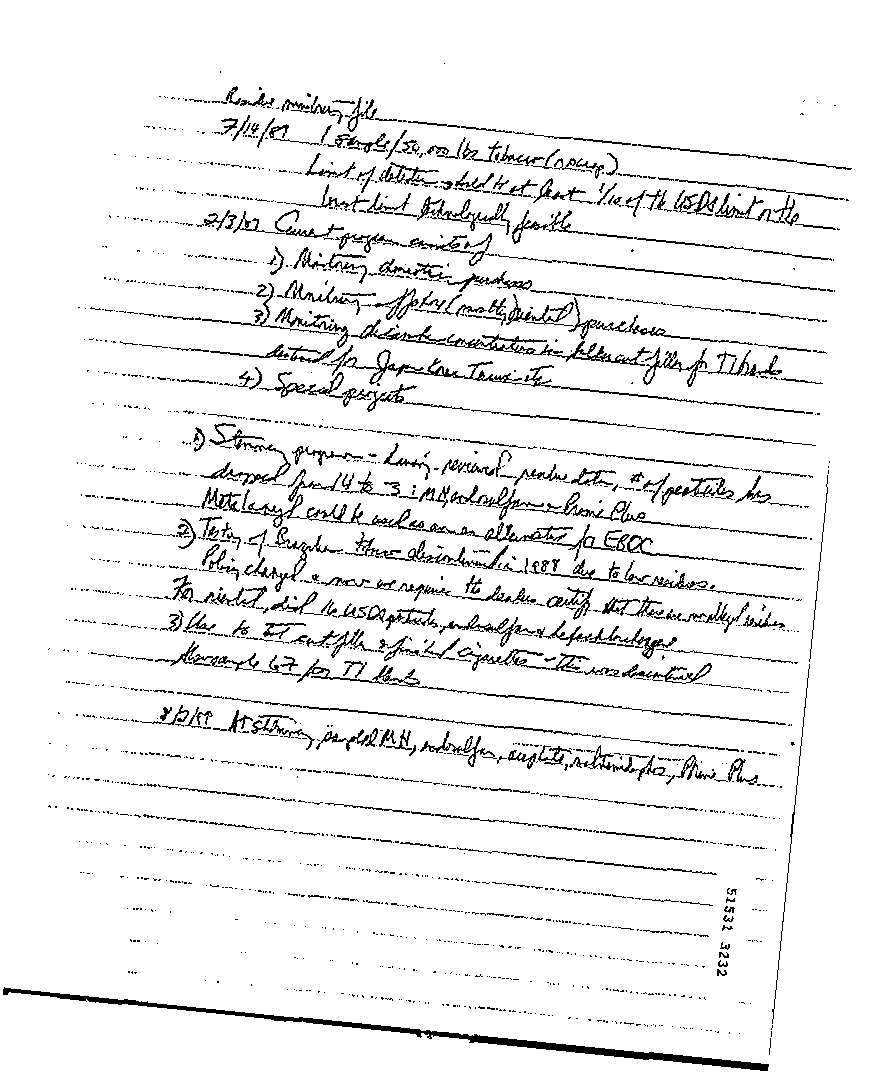 Residue monitoring file
7/14/87 1 sample/50,000 lbs tobacco
Limit of detection should be at least 1/10 of the USDA limit or the
lowest limit technologically feasible
2/3/87 Current program consists of
1) Monitoring domestic purchases
2) Monitoring offshore (mostly oriental) purchases
3) Monitoring concentrations in cut filler for TI brands
destined for Japan Korea Taiwan etc
4) Special projects
1) Stemmery program - having reviewed residue data, # of pesticides has
dropped from 14 to 3: MH, endosulfan & Prime Plus
Metalaxyl could be used as an alternative for EBDC
2) Testing of Brazilian discontinued in 1988 due to low residues.
Policy changed & now we require the dealers certify that there are no residues
For oriental, did the USDA pesticides, endosulfan &
3) Use to test cut filler & finished cigarettes - this was discontinued
Now sample for TI
8/3/89 At stemmery, sampled MH, endosulfan, acephate, methamidophos, Prime Plus
51531 3232